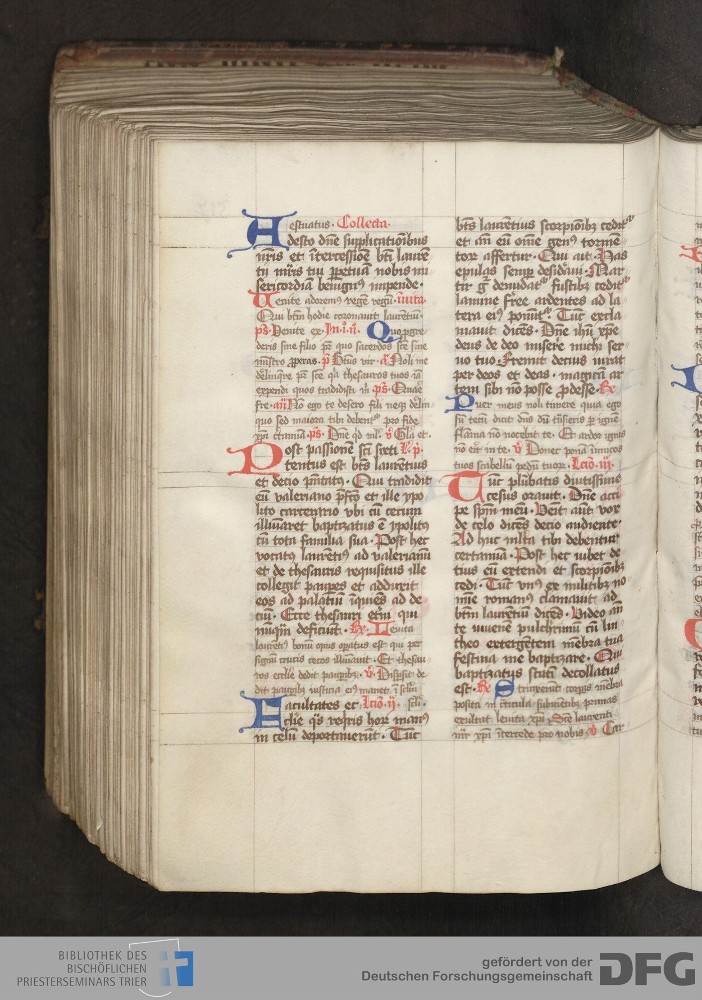 estuatus. Collecta.
Adesto dn̄e supplicatiōibus
nr̄is et ītercessiōe bt̄i laurē
tij mr̄is tui ꝑpetuā nobis mi
sericordiā benignꝰ impende.
Venite adoremꝰ regē regū. īuita.
Qui btm̄ hodie coronauit laurētiū.
ps. Venite ex. In. i. n̄. Quo ꝓgre
deris sine filio pr̄ quo sacerdos sc̄e sine
mīstro ꝓperas. p̄ Btūs vir. a Noli me
derelīq̄re pr̄ sc̄e q̄a thesauros tuos iā
expendi quos tradidisti m̄ ps. Quare
fre. an̄ Nō ego te desero fili neqꝫ delīn
quo sed maiora tibi debent᷑ pro fide
xp̄i c̄tamīa. ps. Dn̄e qd̄ ml̄. v̄ Gl̄a et.
Post passionem sc̄i sixti L. p̄.
tentus est bt̄s laurētius
et decio pn̄tatꝰ. Qui tradidit
eū valeriano p̄fc̄o et ille ypo
lito carcerario vbi cū cecum
illūiaret baptizatus ē ypolitꝰ
cū tota familia sua. Post hec
vocatꝰ laurētiꝰ ad valerianū
et de thesauris requisitus ille
collegit paupes et adduxit
eos ad palatiū īquiēs ad de
ciū. Ecce thesauri et̄ni qui
nūqꝫ deficiūt. Rx. Leuita
laurētiꝰ bonū opus oꝑatus est qui per
signū crucis cecos illūiauit. Et thesau
ros ecclīe dedit paupibꝫ. v̄. Dispsit de
dit paupibꝫ iusticia eiꝰ manet ī sc̄lm̄
Facultates ec Lc̄io. ij. sc̄li.
clīe q̄s req̄ris hoꝝ manꝰ
in celū deportauerūt. Tūc
bt̄s laurētius scorpiōibꝫ cedit᷑
et an̄ eū om̄e genꝰ tormē
toꝝ affertur. Qui ait. Has
epulas semꝑ desidaui. Mar
tir ḡ denudatꝰ fustibꝫ cedit᷑
lamine free ardentes ad la
tera eiꝰ ponūt᷑. Tūc excla
mauit dicēs. Dn̄e ihū xp̄e
deus de deo misere michi ser
uo tuo. Fremit decius iurat
per deos et deas. magicā ar
tem sibi nō posse ꝓdesse. Rx
Puer meus noli timere quia ego
sū tecū dicit dn̄s dū trāsieris ꝑ ignē
flāma nō nocebit te. Et ardor ignis
nō eit in te. v̄ Donec ponā inīcos
tuos scabellū pedū tuoꝝ. Lc̄io. iij.
Tūc plūbatis diutissime
cesus orauit. Dn̄e acci
pe spm̄ meū. Venit aūt vox
de celo dicēs decio audiente.
Adhuc mlta tibi debentur
certamīa. Post hec iubet de
tius eū extendi et scorpiōibꝫ
cedi. Tūc vnꝰ ex militibꝫ no
mīe romanꝰ clamauit ad
btm̄ laurētiū dicēs. Video an̄
te iuuenē pulchrimū cū lin
theo extergētem mēbra tua
festina me baptizare. Qui
baptizatus statī decollatus
est. Rx Strinxerūt corpꝰ mēbra
posita in cratīcula subicientibꝫ prunas
exultat leuita xp̄i. Sc̄e laurenti
mr̄ xp̄i ītercede pro nobis v̄ Car
BIBLIOTHEK DES
BISCHÖFLICHEN
PRIESTERSEMINARS TRIER
gefördert von der
Deutschen Forschungsgemeinschaft
DFG